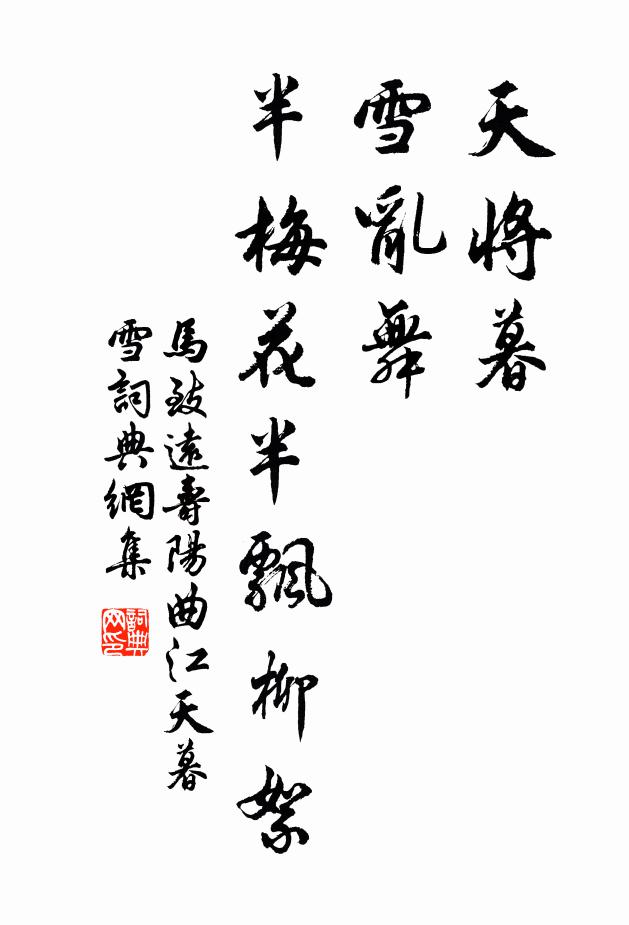 天將暮
雪亂舞
半梅花半飄柳絮
馬致遠壽陽曲江天暮
雪詞典網集
詞典
网印